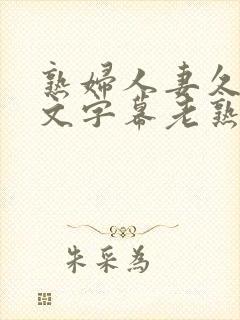 熟婦人妻久
文字幕老熟
朱采為